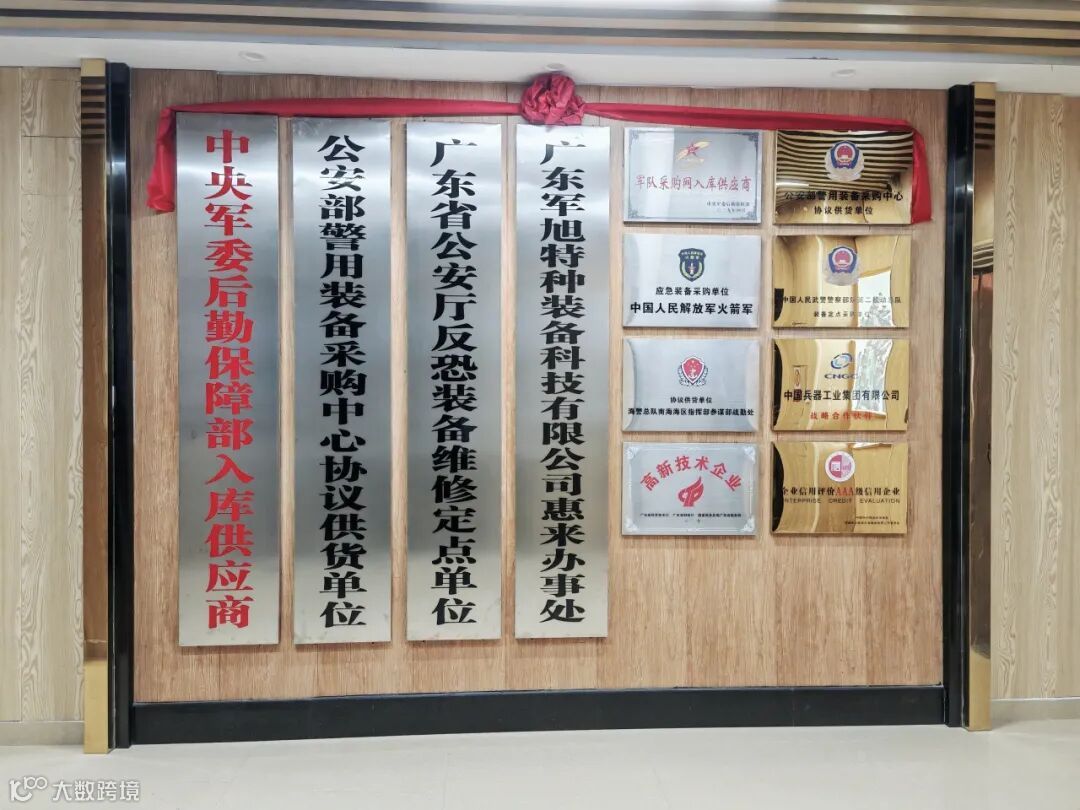 中央军委后勤保障部入库供应商
公安部警用装备采购中心协议供货单位
广东省公安厅反恐装备维修定点单位
广东军旭特种装备科技有限公司惠来办事处
军队采购网入库供应商
公安部警用装备采购中心
协议供货单位
应急装备采购单位
中国人民解放军火箭军
装备定点采购单位
协议供货单位
海警总队南海海区指挥部参谋部战勤处
CNGC
中国兵器工业集团有限公司
战略合作伙伴
高新技术企业
企业信用评价AAA级信用企业
ENTERPRISE CREDIT EVALUATION
大数跨境